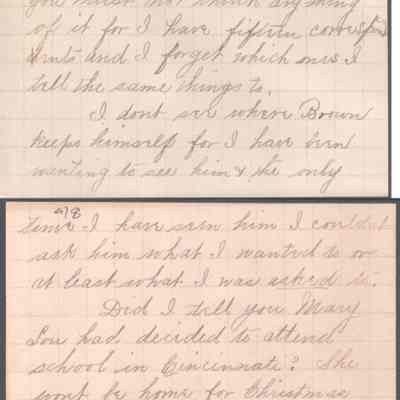 you must not think anything
of it for I have fifteen correspond
ents and I forget which ones I
tell the same things to.
I dont see where Brown
keeps himself for I have been
wanting to see him & the only
time I have seen him I couldnt
ask him what I wanted to or
at least what I was asked to.
Did I tell you Mary
Lou had decided to attend
school in Cincinnati? She
wont be home for Christmas